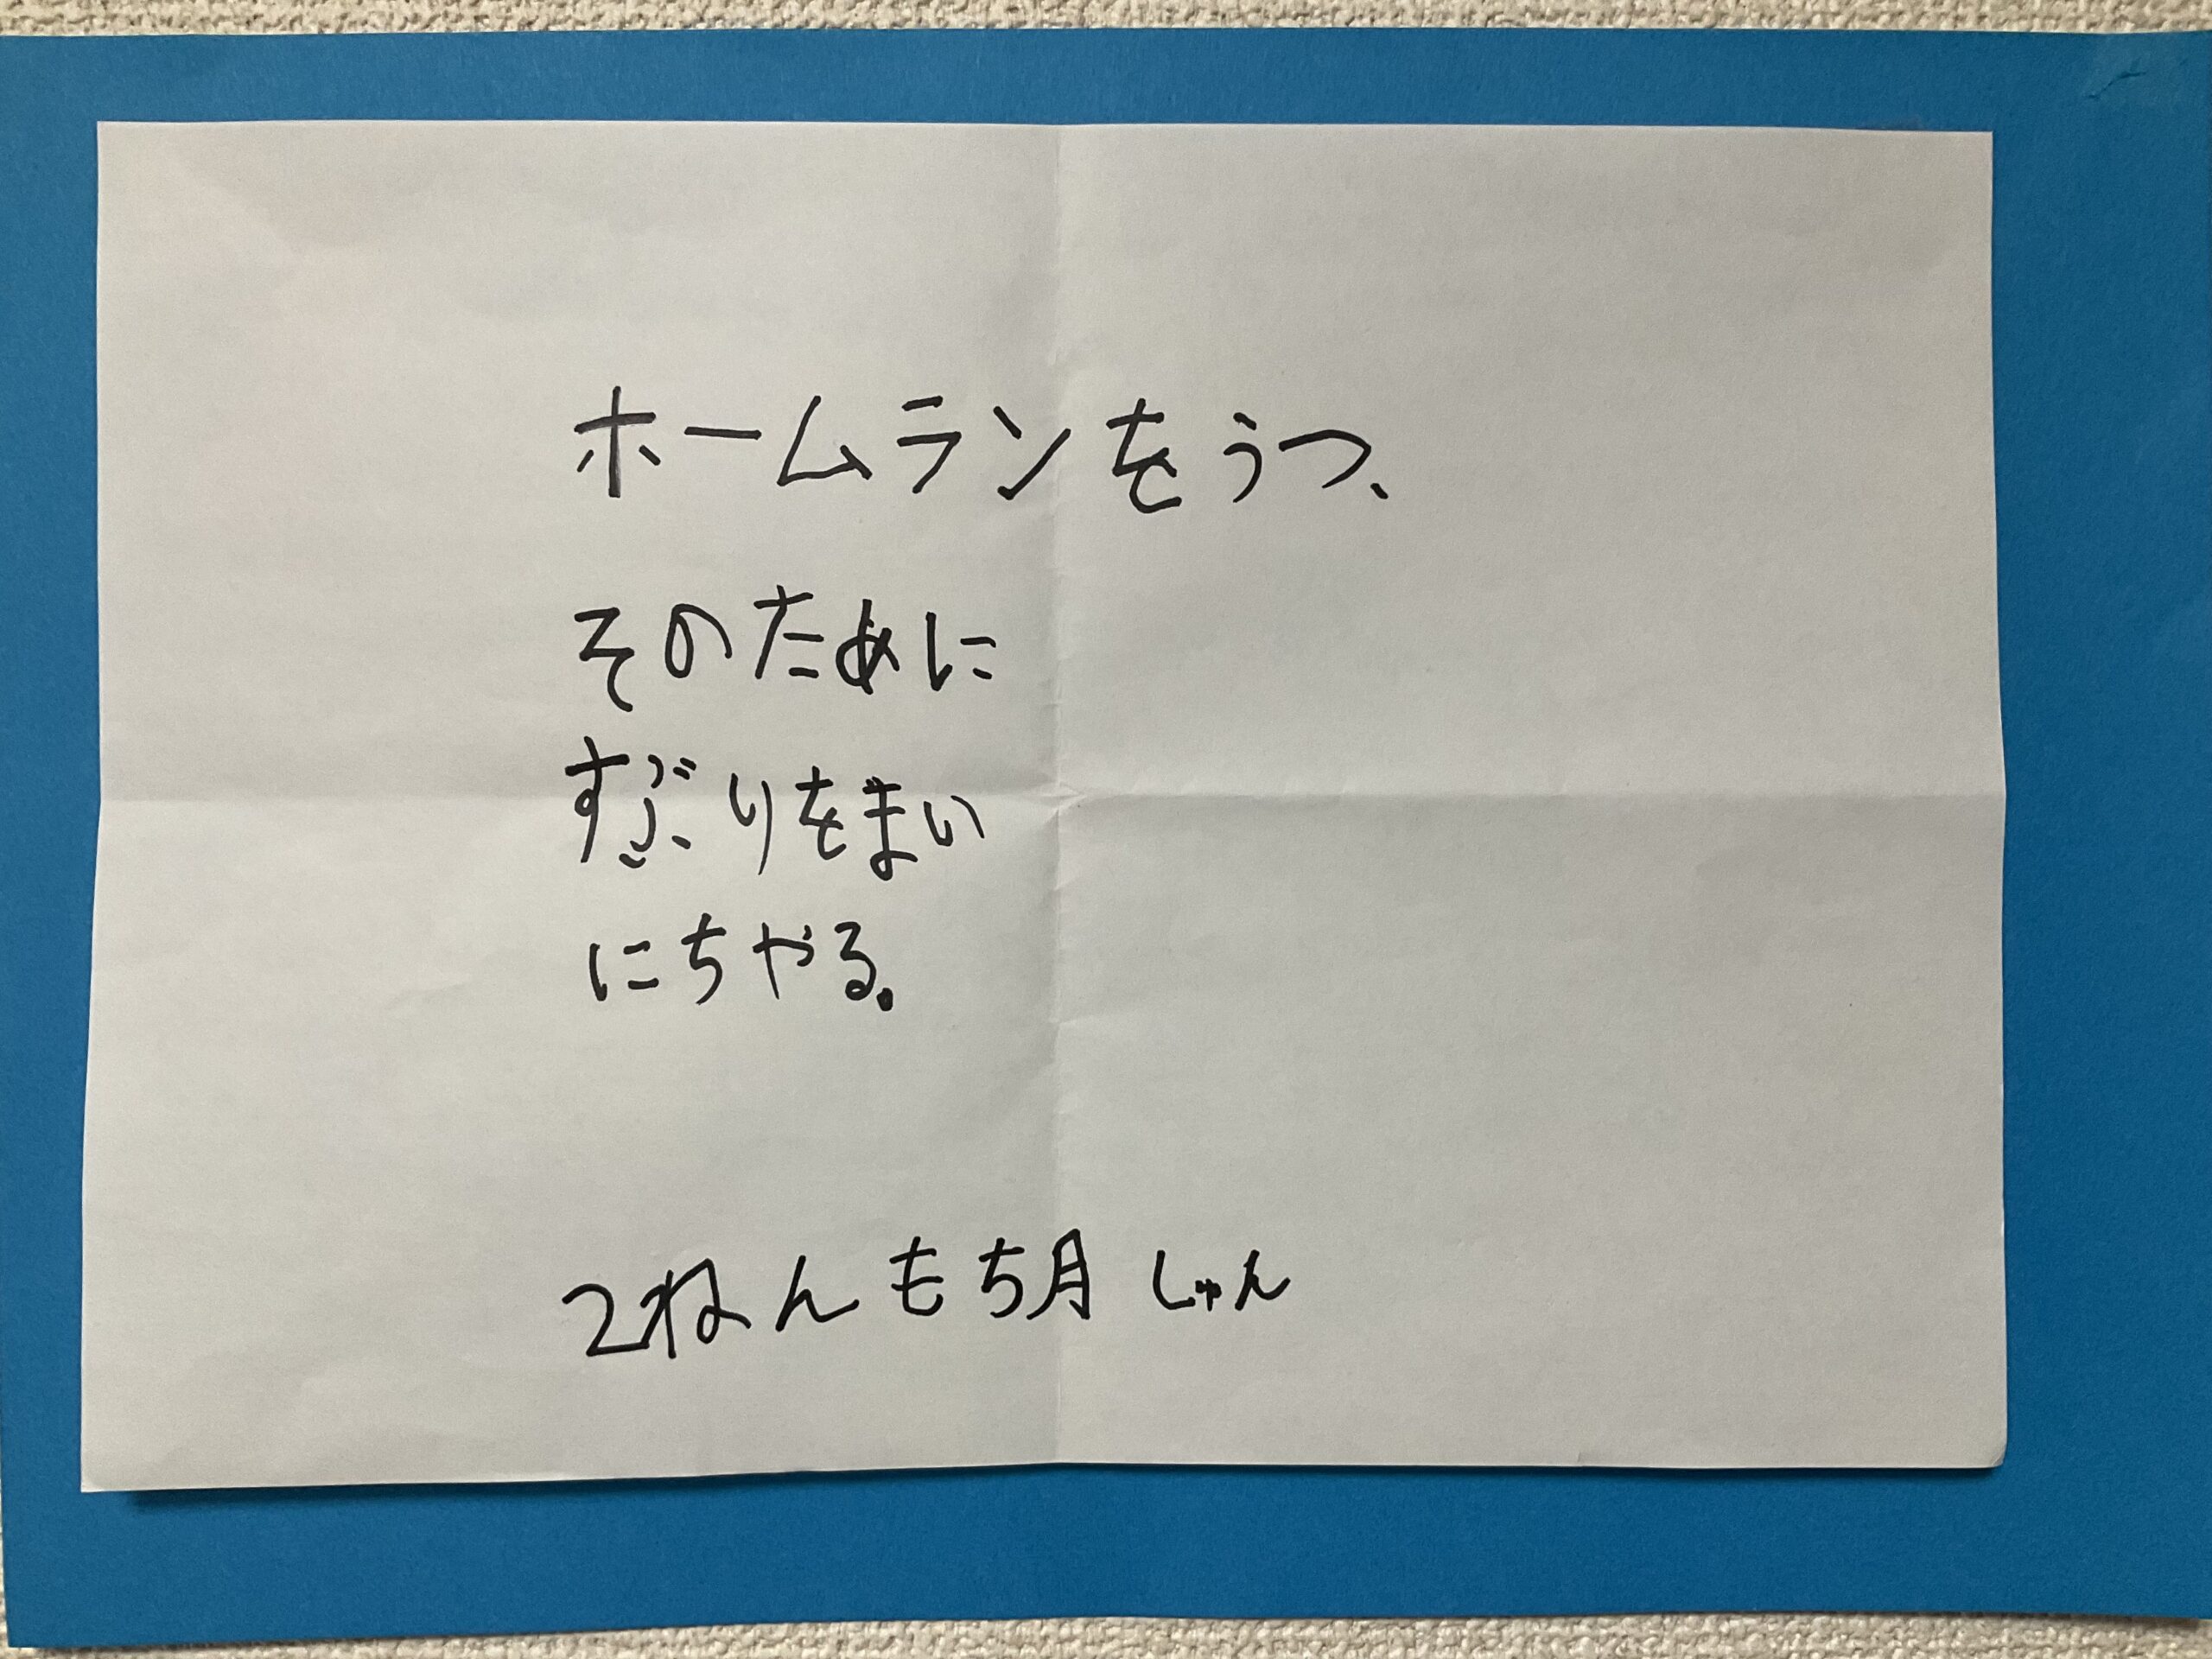 ホームランをうつ、
そのために
すぶりをまい
にちやる。
2ねんもち月 しゅん